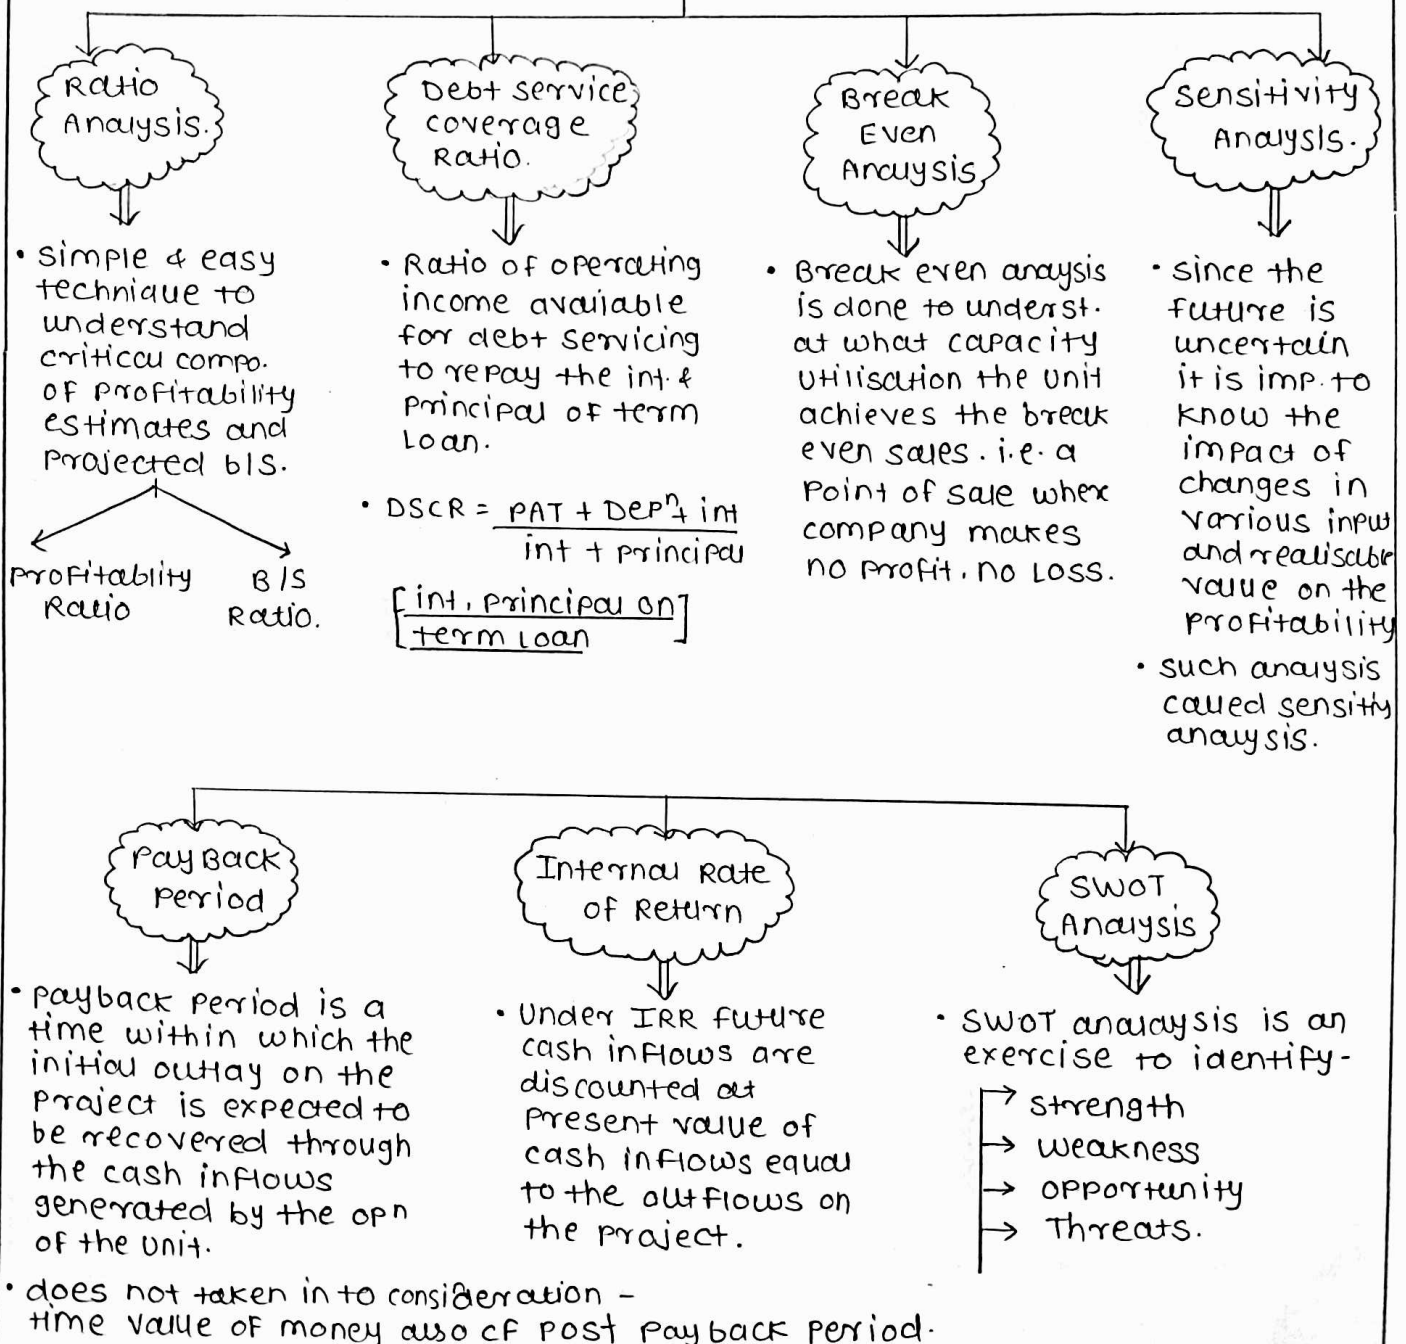 Ratio
Analysis.
• simple & easy
technique to
understand
critical compo.
of profitability
estimates and
projected b/s.
Profitablity
Ratio
B/S
Ratio.
Debt service
coverage
Ratio.
• Ratio of operating
income available
for debt servicing
to repay the int. &
principal of term
Loan.
• DSCR = PAT + Depⁿ + int
int + principal
[int, principal on
term loan]
Break
Even
Analysis
• Break even anaysis
is done to underst.
at what capacity
utilisation the unit
achieves the break
even sales. i.e. a
point of sale where
company makes
no profit, no Loss.
sensitivity
Analysis.
• since the
future is
uncertain
it is imp. to
know the
impact of
changes in
various input
and realisable
value on the
profitability
• such analysis
called sensitiy
analysis.
Pay Back
Period
• payback period is a
time within which the
initial outlay on the
project is expected to
be recovered through
the cash inflows
generated by the opn
of the unit.
• does not taken in to consideration -
time value of money also cf post payback period.
Internal Rate
of Return
• Under IRR future
cash inflows are
discounted at
present value of
cash inflows equal
to the outflows on
the project.
SWOT
Analysis
• SWOT analaysis is an
exercise to identify-
→ strength
→ weakness
→ opportunity
→ Threats.